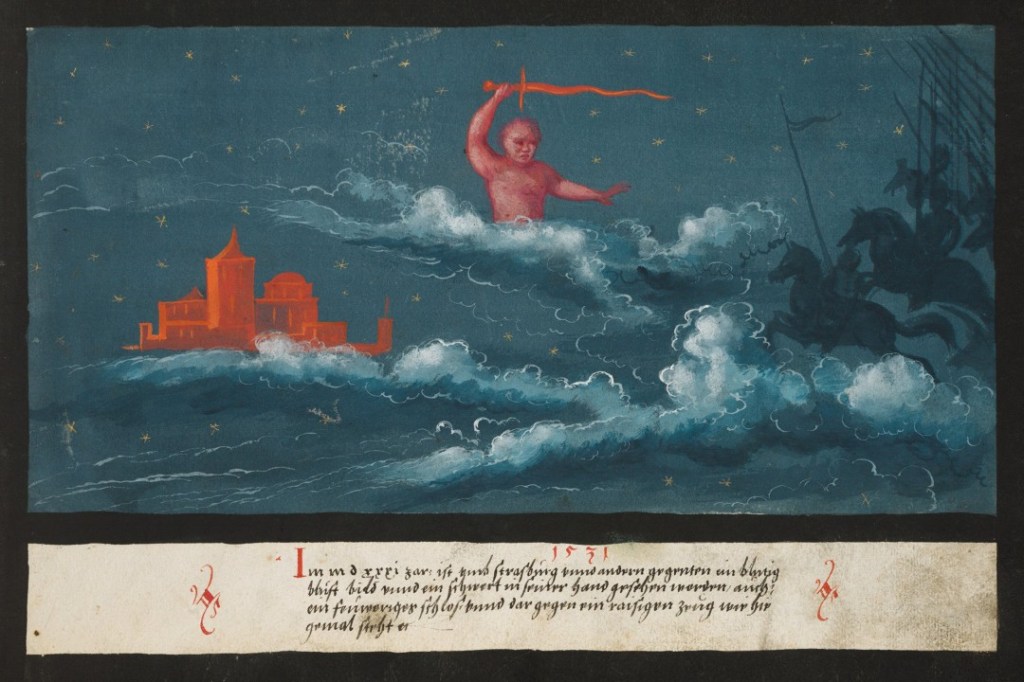 1531
Im m d xxxi Jar, ist vmb strasburg vnnd andern gegenten ein blutig
bild vnnd ein schwert in seiner hand gesehen worden, auch,
ein feuweriges schlos, vnnd dar gegen ein raisigen zeug wie hie
gemal steht